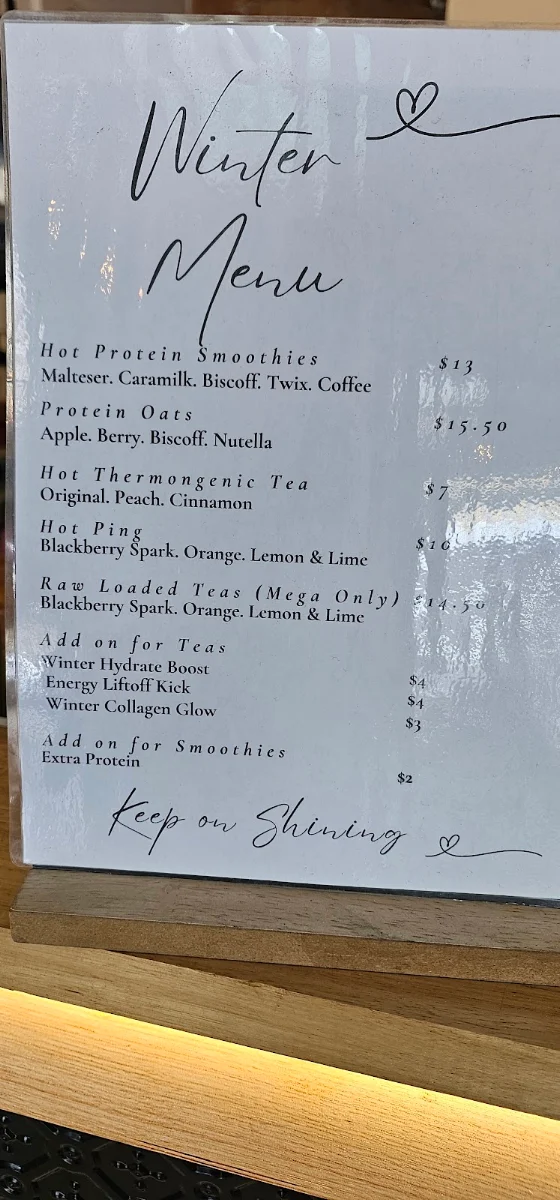 Winter
Menu
Hot Protein Smoothies $13
Malteser. Caramilk. Biscoff. Twix. Coffee
Protein Oats $15.50
Apple. Berry. Biscoff. Nutella
Hot Thermongenic Tea $7
Original. Peach. Cinnamon
Hot Ping $10
Blackberry Spark. Orange. Lemon & Lime
Raw Loaded Teas (Mega Only) $14.50
Blackberry Spark. Orange. Lemon & Lime
Add on for Teas
Winter Hydrate Boost $4
Energy Liftoff Kick $4
Winter Collagen Glow $3
Add on for Smoothies
Extra Protein $2
Keep on Shining